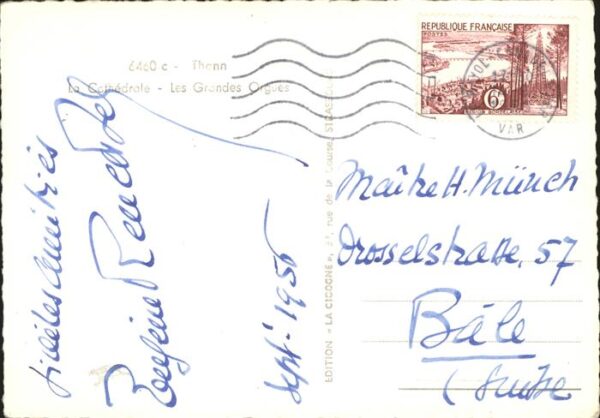 6460 c - Thann
La Cathédrale - Les Grandes Orgues
fidèles amitiés
Sept. 1956
EDITION « LA CICOGNE », rue de la Course, STRASBOURG
REPUBLIQUE FRANÇAISE
POSTES
6F
VAR
Maître H. Münch
Drosselstrasse. 57
Bâle
(Suisse